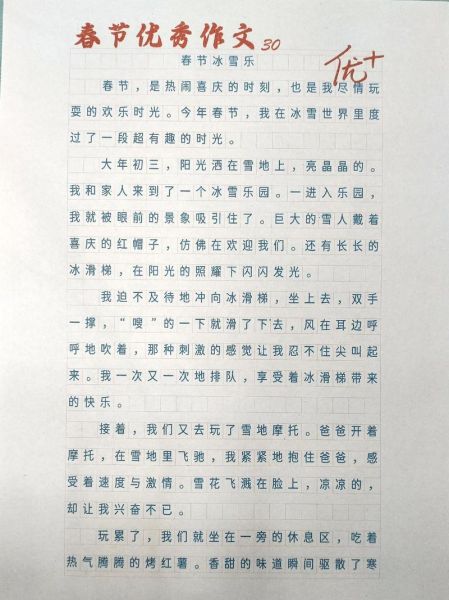 春节优秀作文30
优+
春节冰雪乐
春节，是热闹喜庆的时刻，也是我尽情玩
耍的欢乐时光。今年春节，我在冰雪世界里度
过了一段超有趣的时光。
大年初三，阳光洒在雪地上，亮晶晶的。
我和家人来到了一个冰雪乐园。一进入乐园，
我就被眼前的景象吸引住了。巨大的雪人戴着
喜庆的红帽子，仿佛在欢迎我们。还有长长的
冰滑梯，在阳光的照耀下闪闪发光。
我迫不及待地冲向冰滑梯，坐上去，双手
一撑，“嗖”的一下就滑了下去，风在耳边呼
呼地吹着，那种刺激的感觉让我忍不住尖叫起
来。我一次又一次地排队，享受着冰滑梯带来
的快乐。
接着，我们又去玩了雪地摩托。爸爸开着
摩托，在雪地里飞驰，我紧紧地抱住爸爸，感
受着速度与激情。雪花飞溅在脸上，凉凉的，
却让我兴奋不已。
玩累了，我们就坐在一旁的休息区，吃着
热气腾腾的烤红薯。香甜的味道瞬间驱散了寒